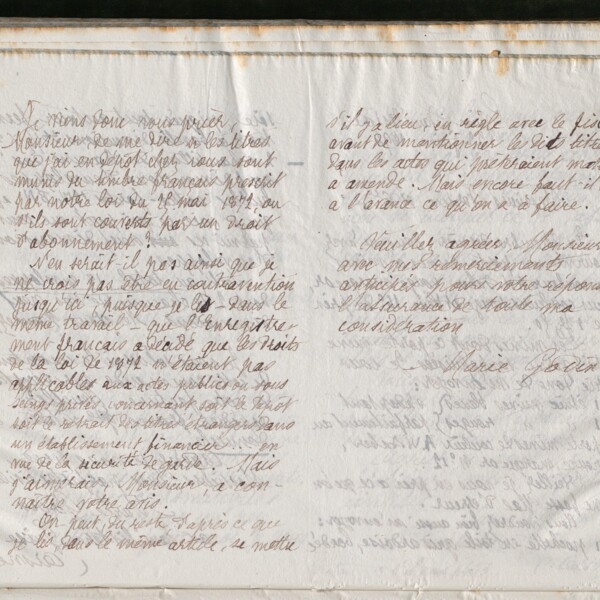 Je viens donc vous prier,
Monsieur de me dire si les titres
que j'ai en dépôt chez vous sont
munis du timbre français prescrit
par notre loi du 25 mai 1872 ou
s'ils sont couverts par un droit
d'abonnement ?
N'en serait-il pas ainsi que je
ne crois pas être en contravention
jusqu'ici, puisque je lis - dans le
même travail - que l'Enregistre-
ment français a décidé que les droits
de la loi de 1872 n'étaient pas
applicables aux actes publics ou sous
seings privés concernant soit le dépôt
soit le retrait des titres étrangers dans
un établissement financier en
vue de la sécurité de garde. Mais
j'aimerais, Monsieur, à con-
naître votre avis.
On peut, du reste, d'après ce que
je lis dans le même article, se mettre
s'il y a lieu, en règle avec le fisc
avant de mentionner les dits titres
dans les actes qui prêteraient
à amende. Mais encore faut-il
à l'avance ce qu'on a à faire.
Veuillez agréer Monsieur
avec mes remerciements
anticipés pour votre réponse
l'assurance de toute ma
considération
Marie Godin